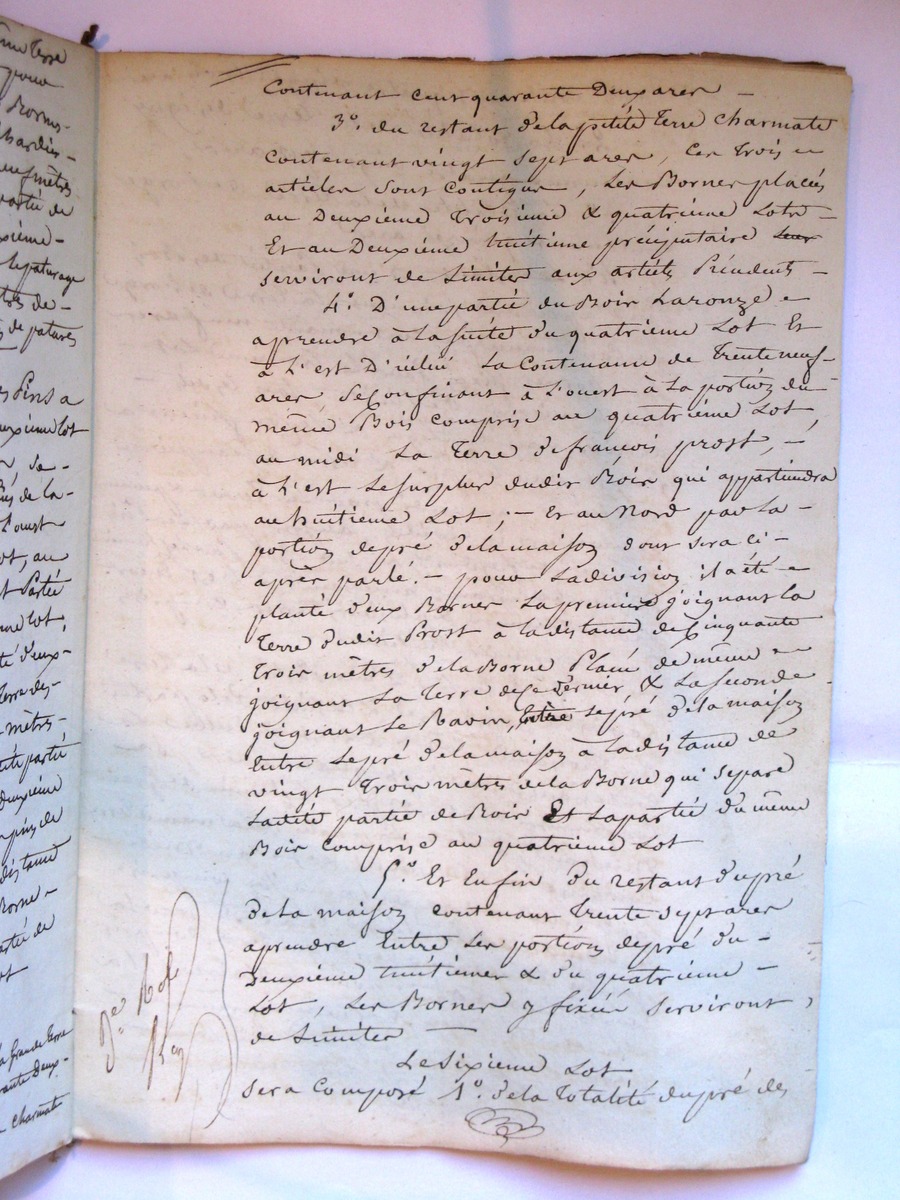 Contenant cent quarante Deux ares —
3.° du restant de la petite Terre charmate
Contenant vingt sept ares, ces trois
articles sont contigus, Les Bornes placées
au Deuxième Troisième & quatrième Lots
Et au Deuxième huitième préciputaire leur
serviront de Limites aux articles Précedents —
4.° D'une partie du Bois Laronze
aprendre à la suite du quatrième Lot Et
à l'est D'icelui La Contenance de Trente neuf
ares Se Confinant à l'ouest à La portion du
même Bois Comprise au quatrième Lot,
au midi La Terre de françois prost, —
à L'est Le surplus dudit Bois qui appartiendra
au huitième Lot; — Et au Nord par La —
portion de pré de la maison dont sera ci-
après parlé. — pour La division il a été
planté deux Bornes La première joignant La
Terre dudit Prost à la distance de Cinquante
Trois mètres de la Borne Placé de même
joignant La Terre de Ce Dernier, & La seconde
joignant Le Ravin, Entre Le pré de la maison
Entre Le pré de la maison à la distance de
vingt Trois mètres de la Borne qui separe
Ladite partie de Bois Et La partie du même
Bois Comprise au quatrième Lot
5.° Et Enfin du restant du pré
de La maison contenant Trente sept ares
aprendre Entre Les portions de pré du —
Deuxième huitièmes & du quatrième —
Lot, Les Bornes y fixées Serviront
de Limites —
Le Sixième Lot
sera Composé 1.° de la Totalité du pré des
une Terre
pour
Bornes
mètres
partie de
pâturage
de patures
Pins a
Lot
de la
L'ouest
au
Partie
Lot,
deux
mètres
partie
deuxième
de
distance
Borne
partie de
La Grande Terre
Deux
charmate